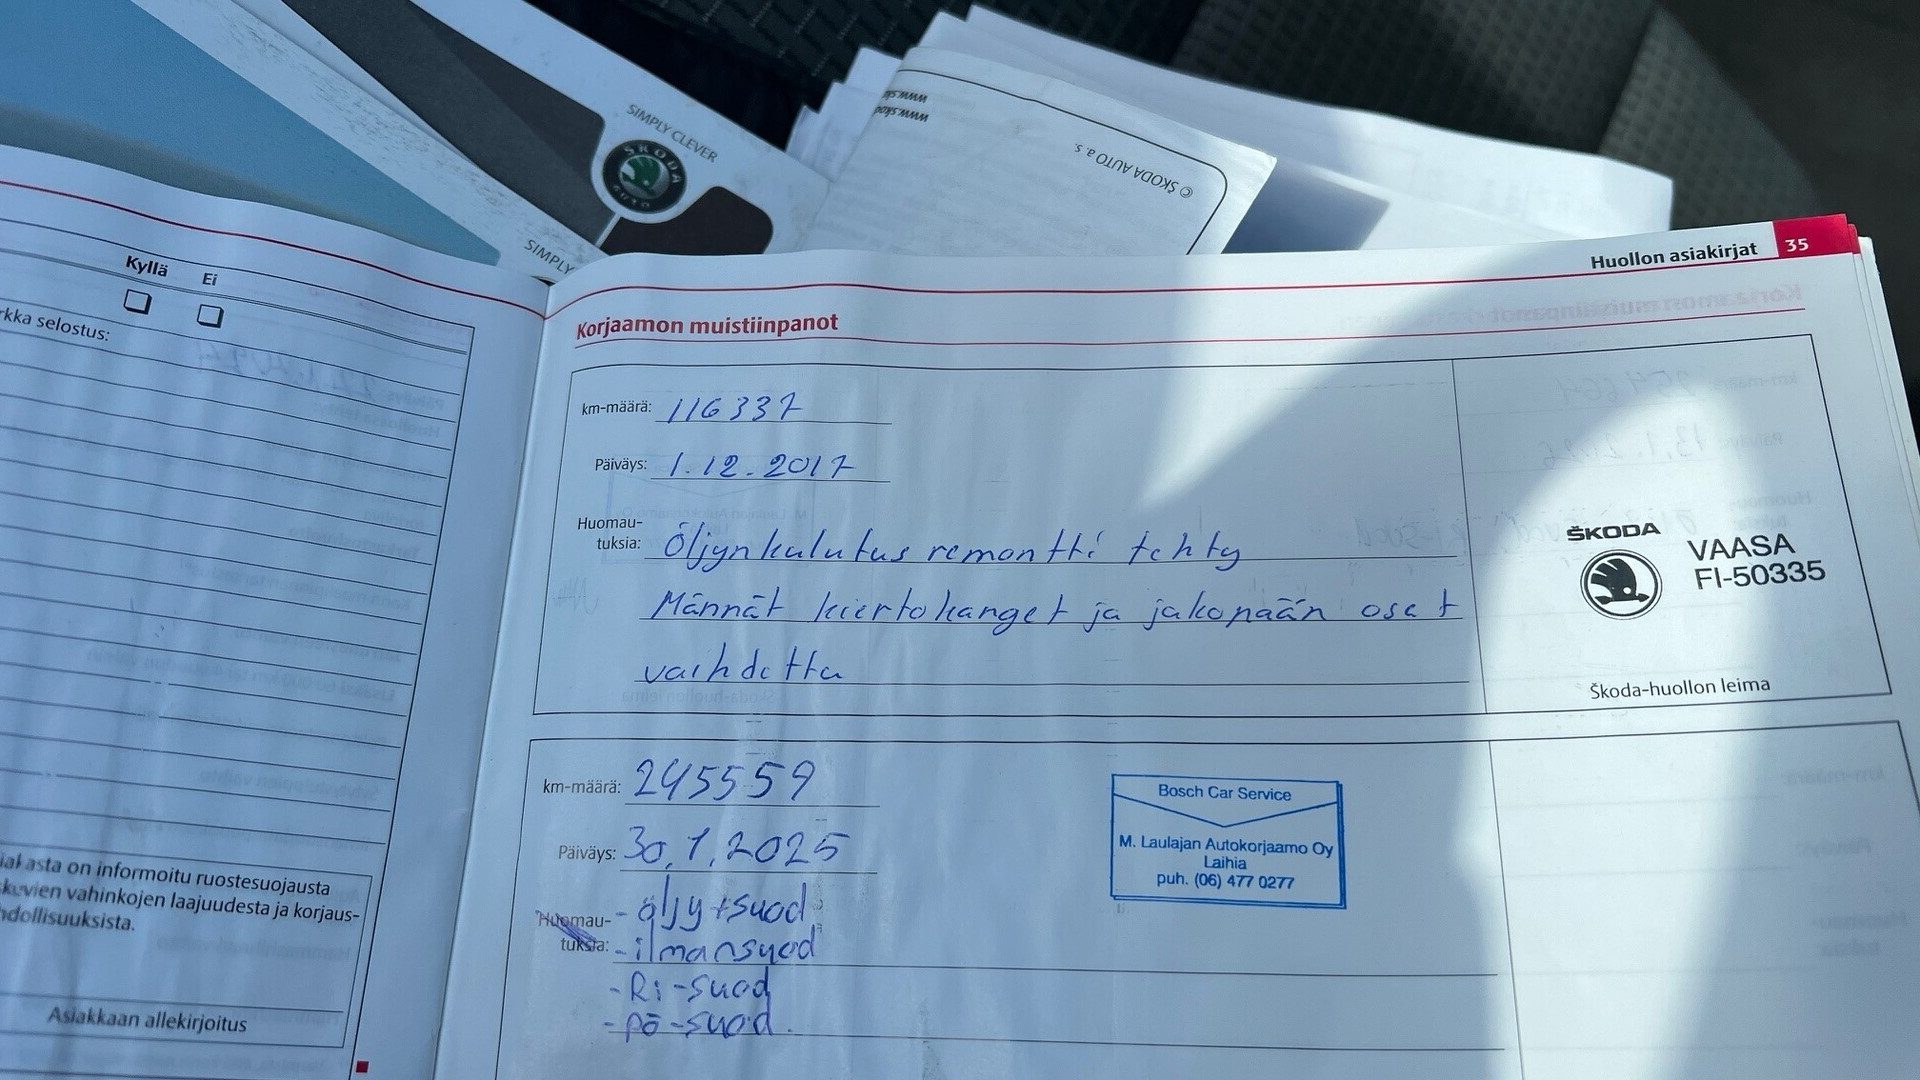 SIMPLY CLEVER
ŠKODA
AUTO
SIMPLY
www.sk
www.skod
© ŠKODA AUTO a. s.
Huollon asiakirjat 35
Kyllä Ei
rkka selostus:
Korjaamon muistiinpanot
km-määrä: 116337
Päiväys: 1.12.2017
Huomau-
tuksia: Öljynkulutus remontti tehty
Männät kiertokanget ja jakopään osat
vaihdettu
ŠKODA
VAASA
FI-50335
Škoda-huollon leima
km-määrä: 245559
Päiväys: 30.1.2025
Huomau-
tuksia:
- öljy+suod
- ilmansuod
- Ri-suod
- pö-suod.
Bosch Car Service
M. Laulajan Autokorjaamo Oy
Laihia
puh. (06) 477 0277
asta on informoitu ruostesuojausta
skevien vahinkojen laajuudesta ja korjaus-
hdollisuuksista.
Asiakkaan allekirjoitus